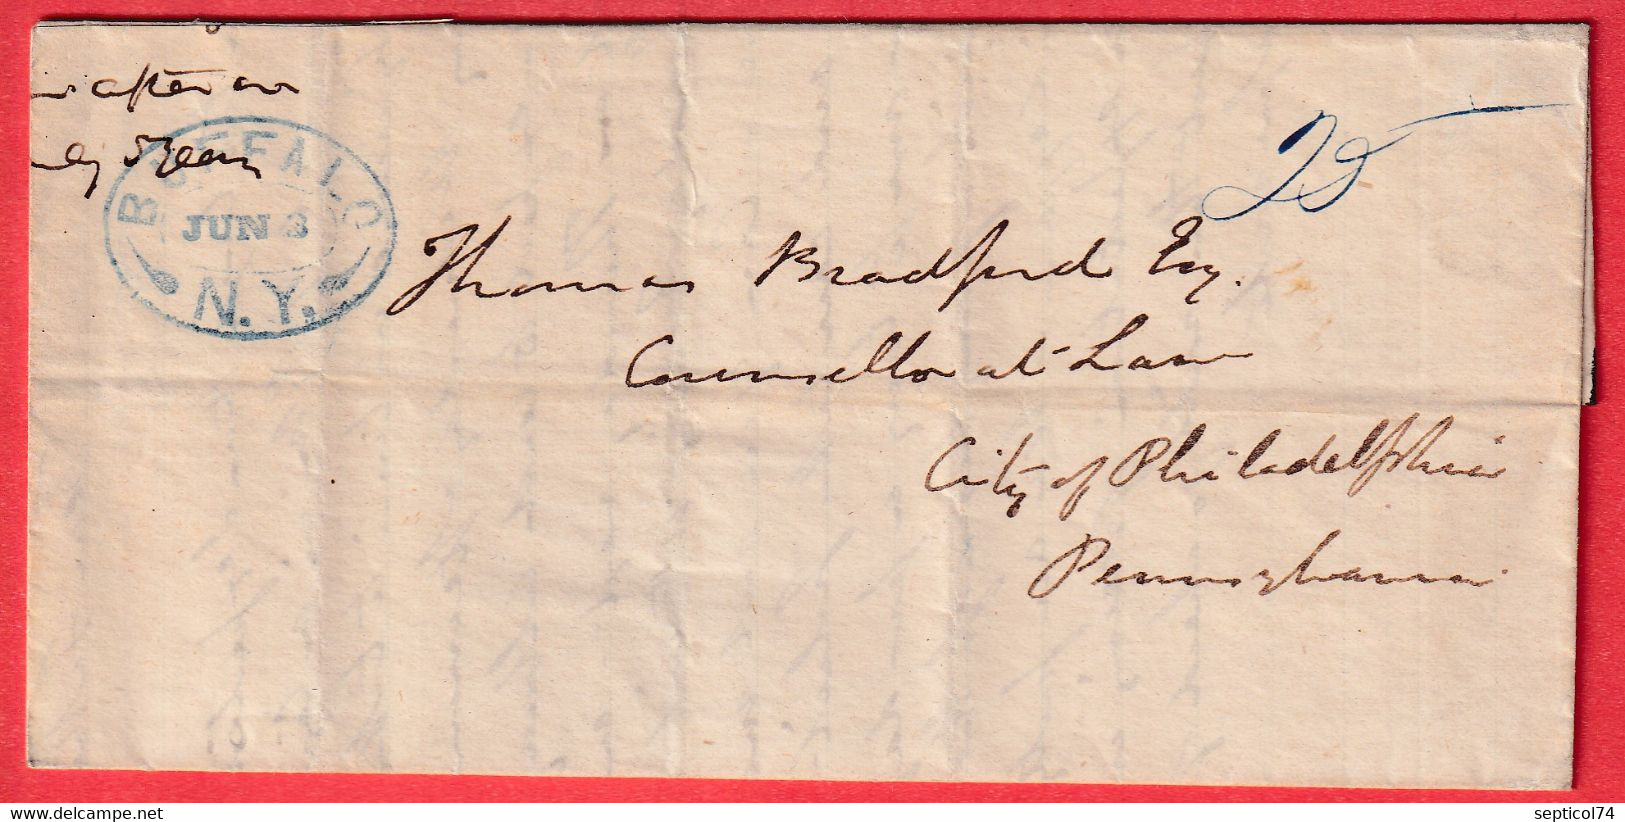 after
BUFFALO
JUN 3
N.Y.
25
Thomas Bradford Esq.
Counsellor at Law
City of Philadelphia
Pennsylvania
septicol74